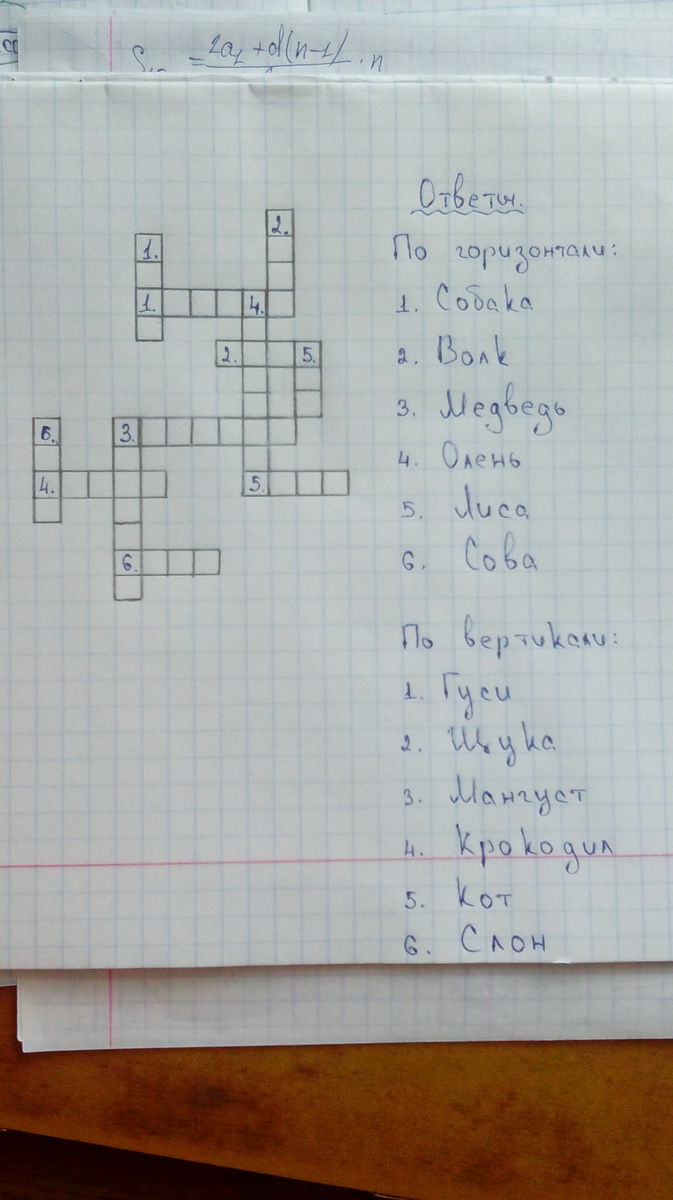 = 2a1 + d(n-1) · n
2.
1.
1. 4.
2. 5.
6. 3.
4. 5.
6.
Ответы.
По горизонтали:
1. Собака
2. Волк
3. Медведь
4. Олень
5. Лиса
6. Сова
По вертикали:
1. Гуси
2. Щука
3. Мангуст
4. Крокодил
5. Кот
6. Слон